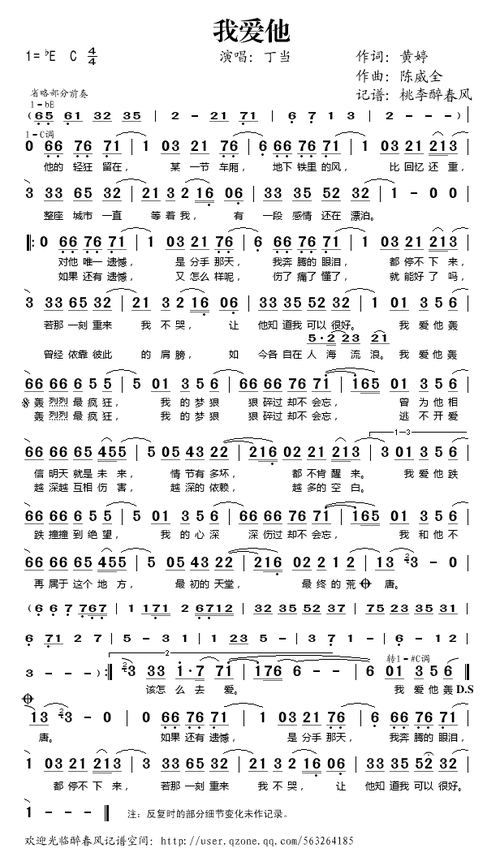 我爱他
1=♭E C 4/4
演唱：丁当
作词：黄婷
作曲：陈威全
记谱：桃李醉春风
省略部分前奏
1-bE
（65 61 32 35 | 2 - 2 71 | 6 7 1 3 | 2 - - - ）|
1-C调
0 66 76 71 | 1 3 21 76 | 6 66 76 71 | 1 03 21 213 |
他的 轻狂 留在， 某 一节 车厢， 地下 铁里 的风， 比 回忆 还 重，
3 33 65 32 | 21 3 2 16 06 | 33 35 52 32 | 1 - 0 0 |
整座 城市 一直 等着 我， 有 一段 感情 还在 漂泊。
0 66 76 71 | 1 3 21 76 | 6 66 76 71 | 1 03 21 213 |
对他 唯一 遗憾， 是 分手 那天， 我奔 腾的 眼泪， 都 停不 下 来，
如果 还有 遗憾， 又 怎么 样呢， 伤了 痛了 懂了， 就 能好 了 吗，
3 33 65 32 | 21 3 2 16 06 | 33 35 52 32 | 1 01 3 5 6 |
若那 一刻 重来 我 不 哭， 让 他知 道我 可以 很好。 我 爱 他 轰
5·2 23 23
曾经 依靠 彼此 的 肩膀， 如 今各 自在 人 海 流 浪。 我 爱 他 轰
66 66 6 5 5 | 5 01 3 5 6 | 66 66 76 71 | 1 165 01 3 5 6 |
轰 烈烈 最 疯狂， 我 的 梦 狠 狠 碎过 却不 会忘， 曾 为 他 相
轰 烈烈 最 疯狂， 我 的 梦 狠 狠 碎过 却不 会忘， 逃 不 开 爱
66 66 65 455 | 5 05 43 22 | 216 02 21 213 | 3 01 3 5 6 |
1-3
信 明天 就是 未 来， 情 节有 多坏， 都 不肯 醒 来。 我 爱 他 跌
越 深越 互相 伤 害， 越 深的 依赖， 越 多的 空 白。
66 66 6 5 5 | 5 01 3 5 6 | 66 66 76 71 | 1 165 01 3 5 6 |
跌 撞撞 到 绝望， 我 的 心 深 深 伤过 却不 会忘， 我 和 他 不
66 66 65 455 | 5 05 43 22 | 216 02 21 2 | 13 3 - 0 |
再 属于 这个 地 方， 最 初的 天堂， 最 终的 荒 唐。
2
转1-#C调
该怎 么 去 爱。 我 爱 他 轰 D.S
唐。 如果 还有 遗憾， 是 分手 那天， 我奔 腾的 眼泪，
1 03 21 213 | 3 33 65 32 | 21 3 2 16 06 | 33 35 52 32 |
都 停不 下 来， 若那 一刻 重来 我 不 哭， 让 他知 道我 可以 很好。
1 - - - ‖ 注：反复时的部分细节变化未作记录。
欢迎光临醉春风记谱空间：http://user.qzone.qq.com/563264185